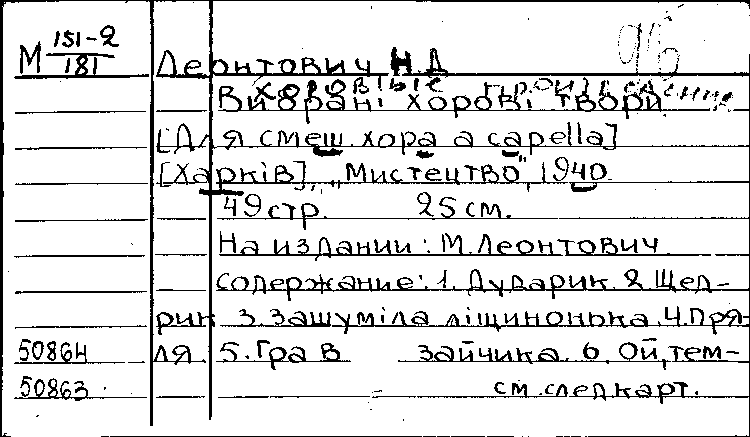 М 151-2/181
96
Леонтович Н.Д
Хоровые произведения
Вибрані хорові твори
[Для смеш. хора a capella]
[Харків], „Мистецтво", 1940
49 стр. 25 см.
На издании: М. Леонтович.
Содержание: 1. Дударик. 2. Щед-
рик 3. Зашуміла ліщинонька. 4. Пря-
50864 ля. 5. Гра в зайчика. 6. Ой, тем-
50863 см. след карт.